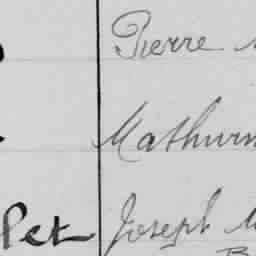 Pierre
Mathurin
let Joseph